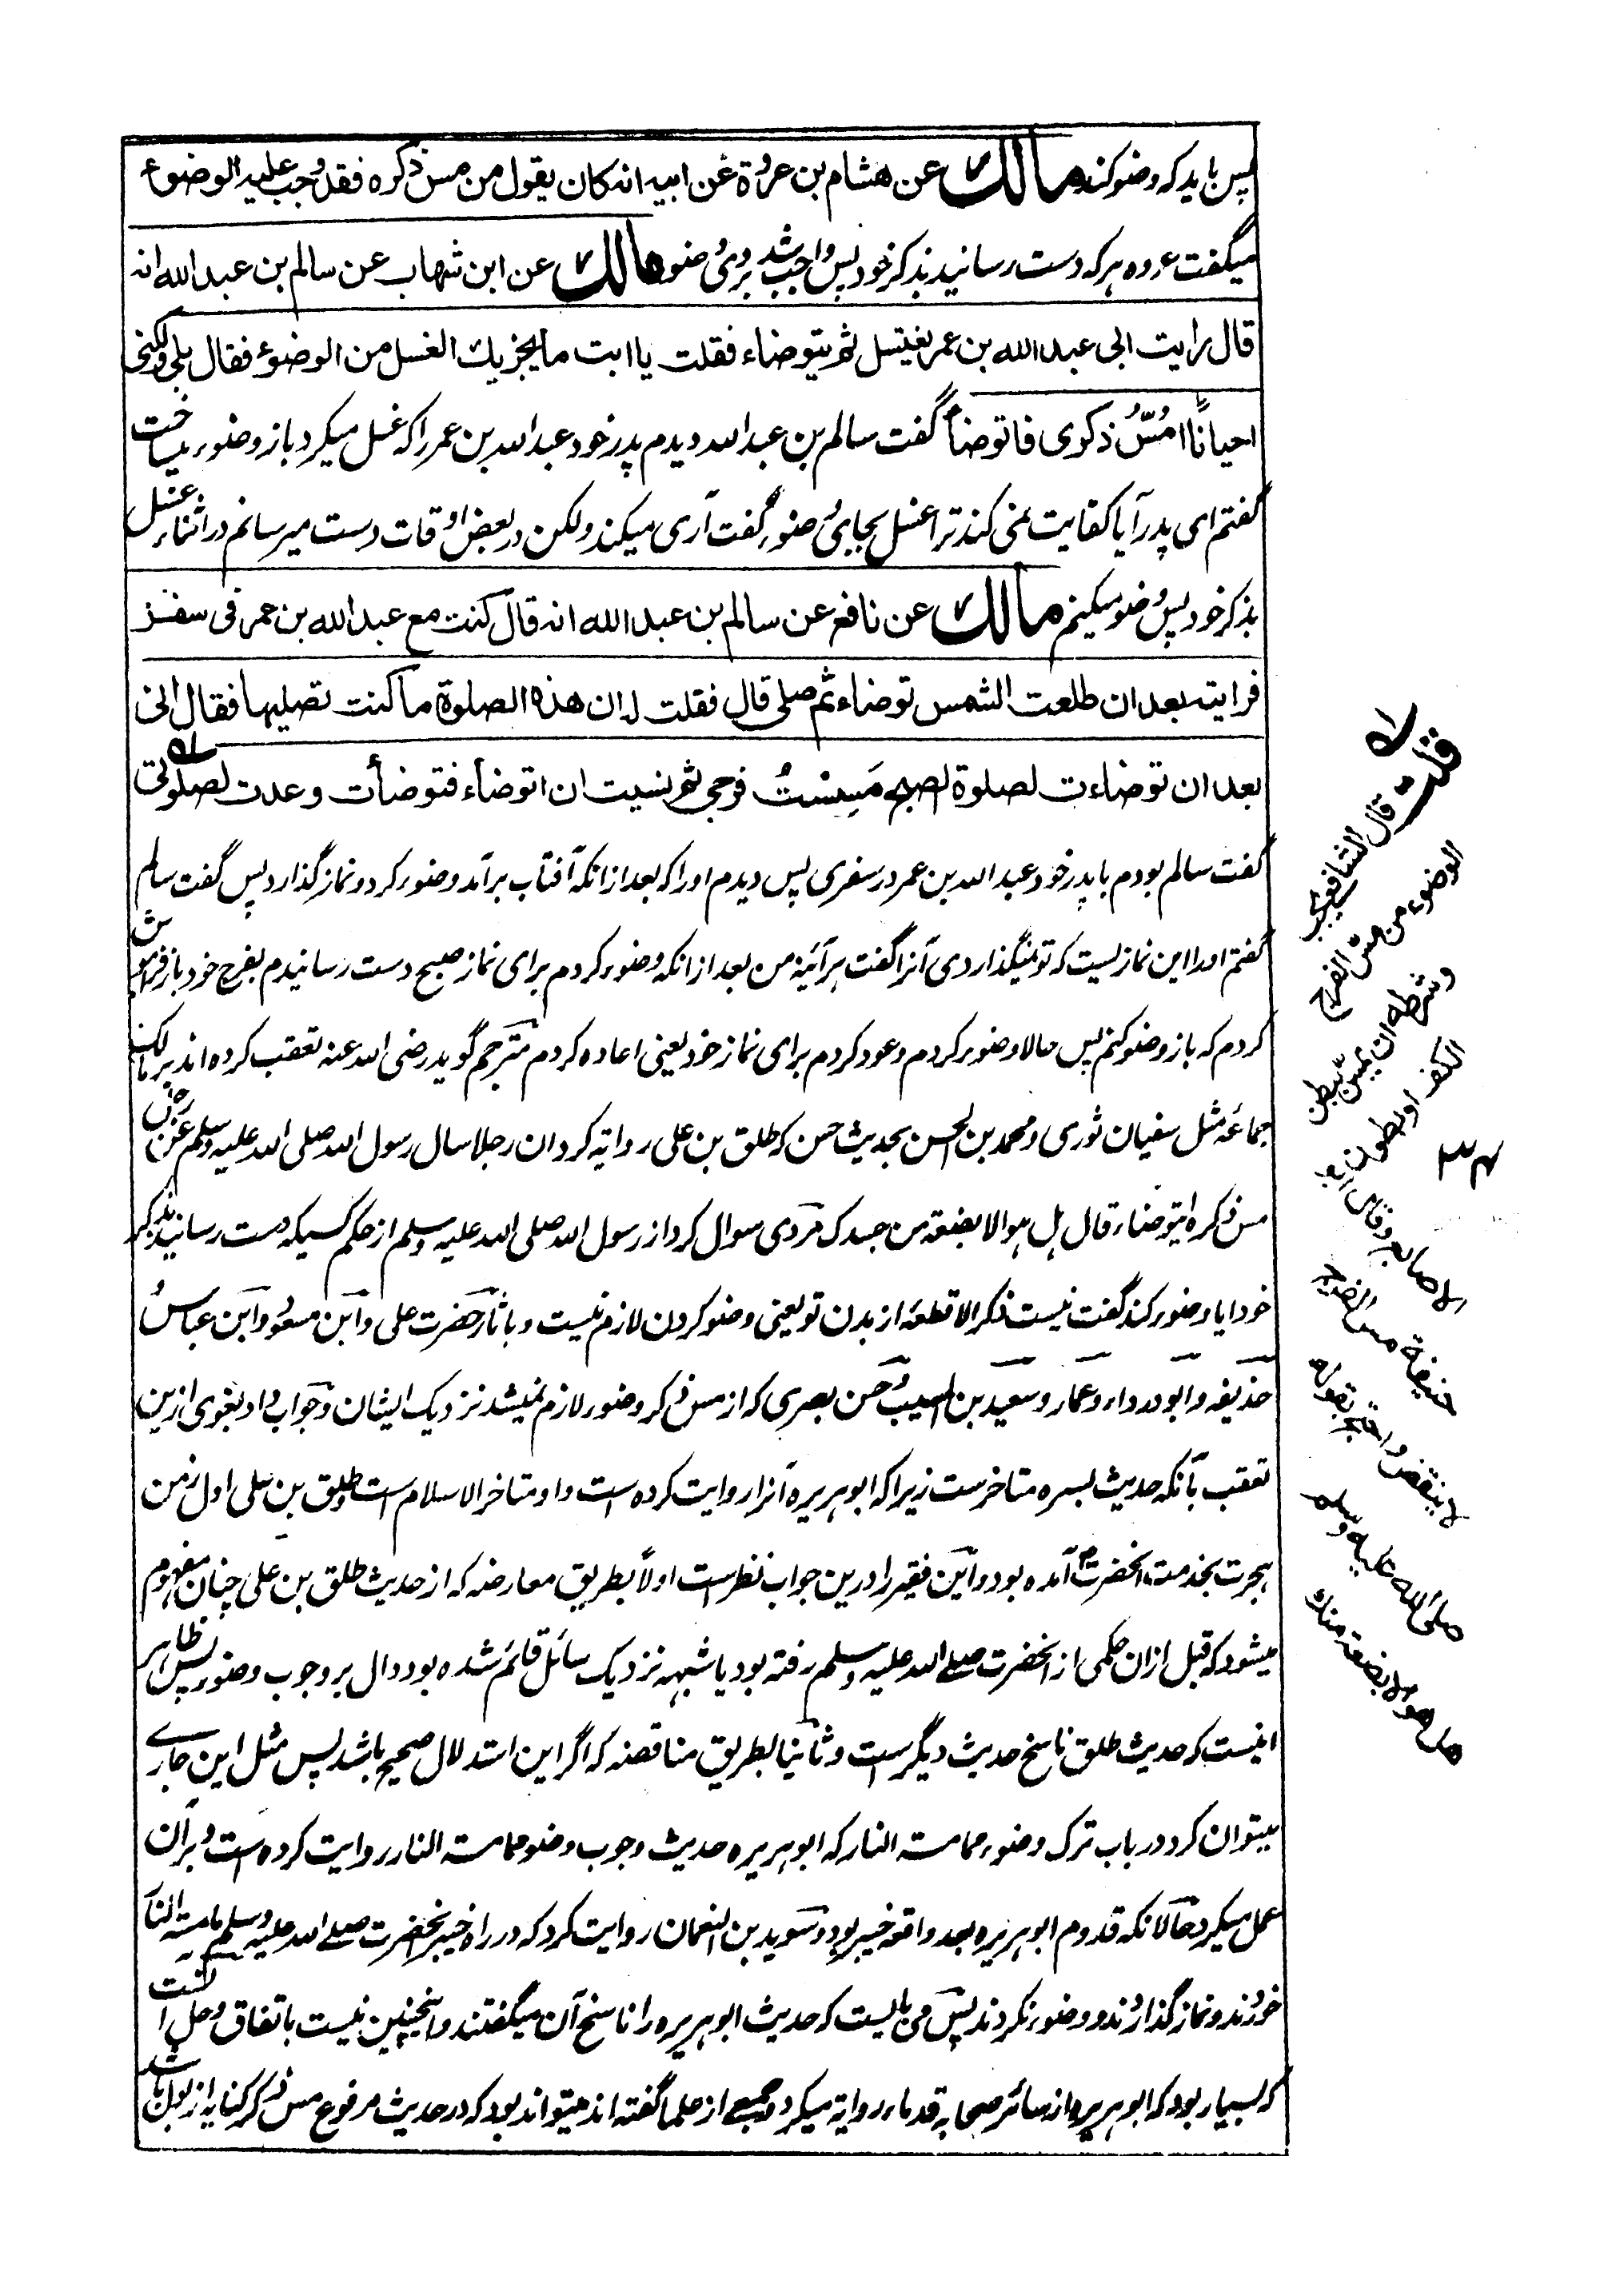 پس باید که وضو کند مالک عن هشام بن عروة عن ابیه انه کان یقول من مس ذکره فقد وجب علیه الوضوء
میگفت عروه هر که دست رسانید بذکر خود پس واجب شد بر وی وضو مالک عن ابن شهاب عن سالم بن عبد الله انه
قال رایت ابی عبد الله بن عمر یغتسل ثم یتوضاء فقلت یا ابت ما یجزیك الغسل من الوضوء فقال بلی ولکنی
احیانًا امُسُّ ذکری فاتوضأ گفت سالم بن عبد الله دیدم پدر خود عبد الله بن عمر را که غسل میکرد باز وضوء میساخت
گفتم ای پدر آیا کفایت نمی کند ترا غسل بجای وضوء گفت آری میکند ولکن در بعض اوقات دست میرسانم در اثناء غسل
بذکر خود پس وضو میکنم مالک عن نافع عن سالم بن عبد الله انه قال کنت مع عبد الله بن عمر فی سفر
فرایته بعد ان طلعت الشمس توضاء ثم صلی قال فقلت له ان هذه الصلوة ما کنت تصلیها فقال انی
بعد ان توضاءت لصلوة الصبح مَسِسْتُ فرجی ثم نسیت ان اتوضاء فتوضأت وعدت لصلوتی
گفت سالم بودم با پدر خود عبد الله بن عمر در سفری پس دیدم او را که بعد از انکه آفتاب بر آمد وضوء کرد و نماز گذارد پس گفت سالم
گفتم او را این نمازیست که تو نمیگذاردی آنرا گفت هر آئینه من بعد از انکه وضوء کردم برای نماز صبح دست رسانیدم بفرج خود باز فراموش
کردم که باز وضو کنم پس حالا وضوء کردم وعود کردم برای نماز خود یعنی اعاده کردم مترجم گوید رضی الله عنه تعقب کرده اند بر مالک
جماعه مثل سفیان ثوری و محمد بن الحسن بحدیث حسن که طلق بن علی روایه کرد ان رجلا سال رسول الله صلی الله علیه وسلم عن رجل
مس ذکره ایتوضاء قال هل هو الا بضعة من جسدک مردی سوال کرد از رسول الله صلی الله علیه وسلم از حکم کسیکه دست رسانید بذکر
خود ایا وضوء کند گفت نیست ذکر الا قطعه از بدن تو یعنی وضو کردن لازم نیست و باثار حضرت علی و ابن مسعود و ابن عباس
حذیفه و ابو درداء و عمار و سعید بن المسیب و حسن بصری که از مس ذکر وضوء لازم نمیشد نزدیک ایشان و جواب داد بغوی ازین
تعقب بآنکه حدیث بسره متاخرست زیرا که ابوهریره آنرا روایت کرده است و او متاخر الاسلام است و طلق بن علی اول زمن
هجرت بخدمت آنحضرت آمده بود و این فقیر را درین جواب نظرست اولًا بطریق معارضه که از حدیث طلق بن علی چنان مفهوم
میشود که قبل ازان حکمی از آنحضرت صلے الله علیه وسلم رفته بود یا شبهه نزدیک سائل قائم شده بود دال بر وجوب وضوء پس ظاهر
اینست که حدیث طلق ناسخ حدیث دیگرست و ثانیًا بطریق مناقضه که اگر این استدلال صحیح باشد پس مثل این جاری
میتوان کرد در باب ترک وضوء مما مسته النار که ابوهریره حدیث وجوب وضو مما مسته النار روایت کرده است و بران
عمل میکرد حالانکه قدوم ابوهریره بعد واقعه خیبر بود و سوید بن النعمان روایت کرد که در راه خیبر آنحضرت صلے الله علیه وسلم ما مسته النار
خوردند و نماز گذاردند و وضوء نکردند پس می بایست که حدیث ابوهریره را ناسخ آن میگفتند و اینچنین نیست باتفاق و حل آنست
که بسیار بود که ابوهریره از سائر صحابه قدماء روایه میکرد و جمعے از علما گفته اند میتواند بود که در حدیث مرفوع مس ذکر کنایه از بول باشد
له
قلت قال الشافعی یجب
الوضوء من مس الفرج
وشرطه ان یمس ببطن
الکف او بطون
الاصابع وقال ابو
حنیفة مس الفرج
لا ینقض واحتج بقوله
صلی الله علیه وسلم
هل هو الا بضعة منك